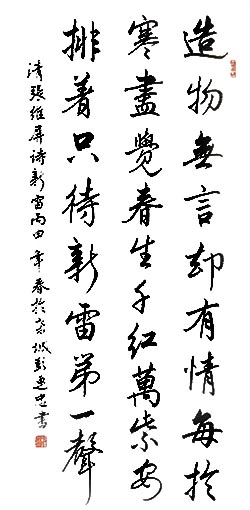 造物無言却有情每於
寒盡覺春生千紅萬紫安
排着只待新雷第一聲
清張維屏诗新雷丙申年春於京城彭運忠書